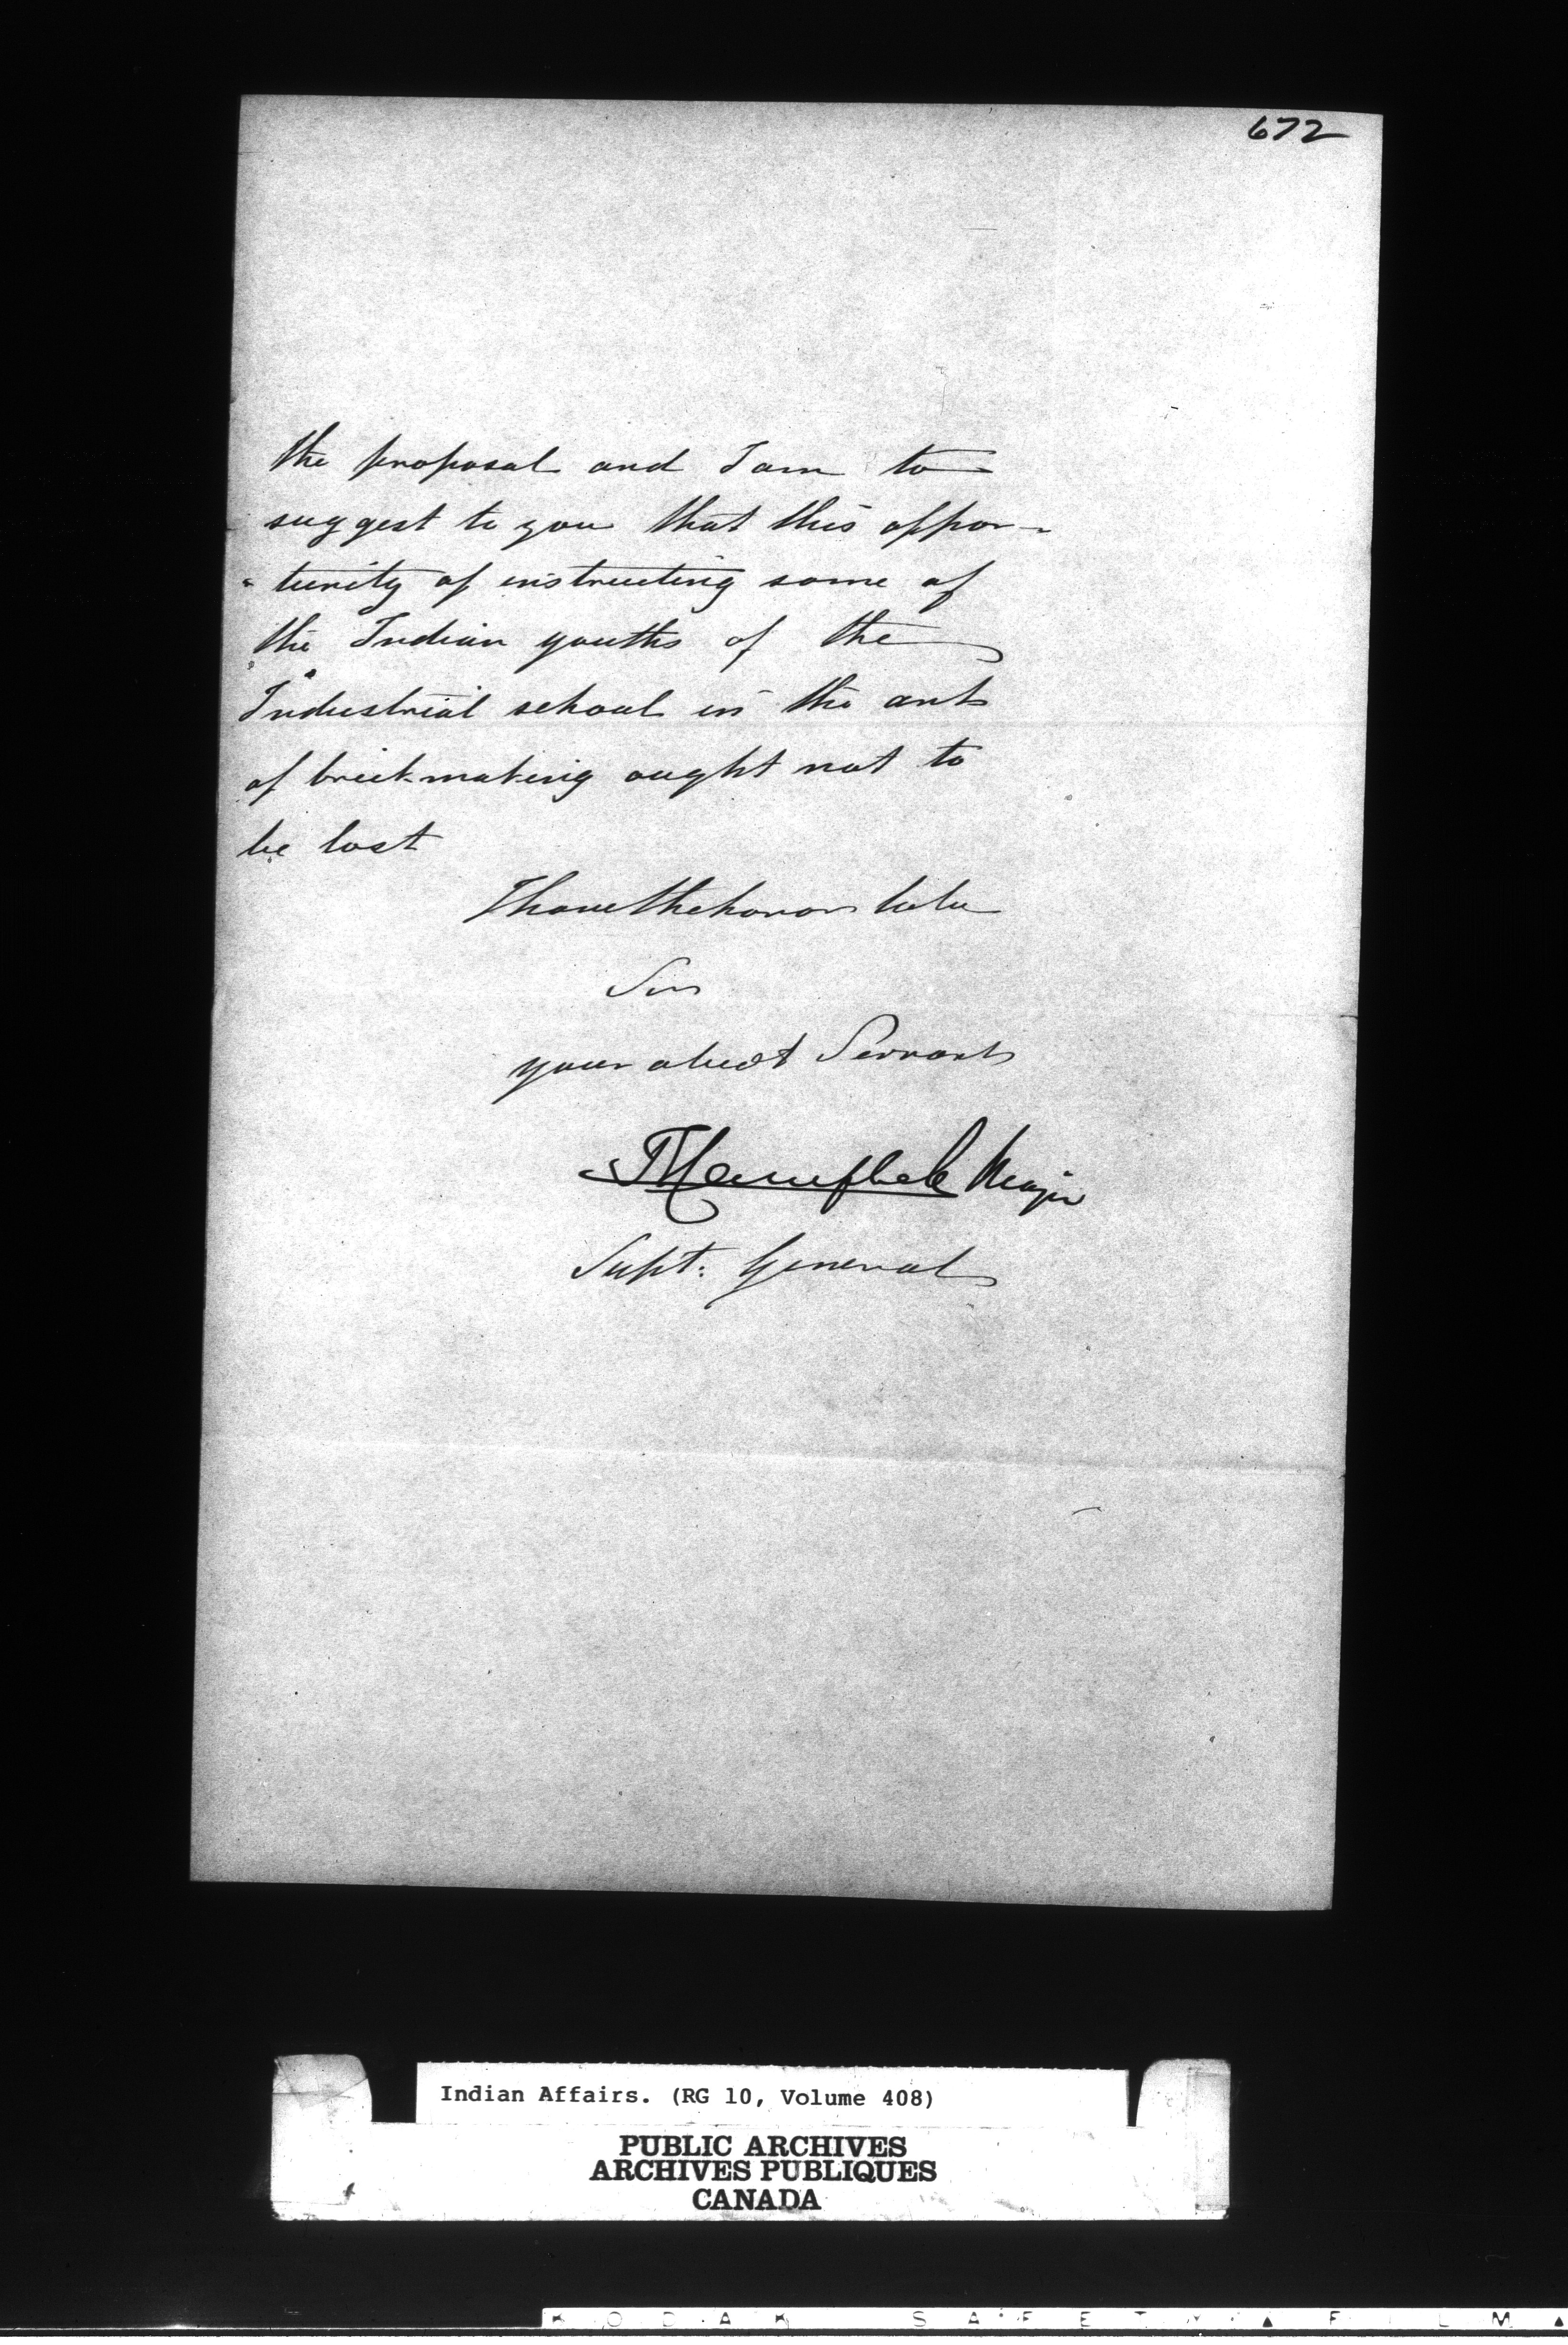 672
the proposal and I am to
suggest to you that this oppor-
-tunity of instructing some of
the Indian youths of the
Industrial school in the art
of brickmaking ought not to
be lost
I have the honor to be
Sir
your obedt Servant
T Campbell Major
Supt: General
Indian Affairs. (RG 10, Volume 408)
PUBLIC ARCHIVES
ARCHIVES PUBLIQUES
CANADA
KODAK SAFETY ▲ FILM ▲